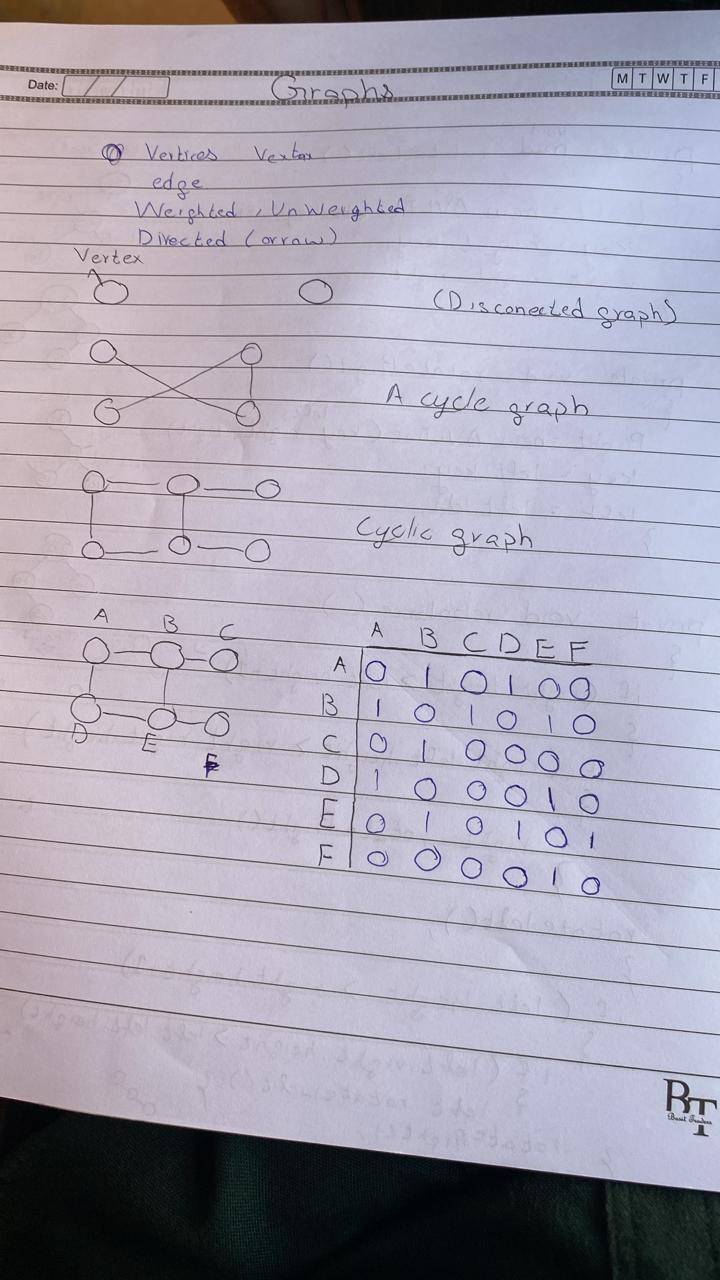 Date: / /
Graphs
M T W T F
Vertices Vertex
edge
Weighted, UnWeighted
Directed (orrow)
Vertex
(Disconected graph)
A cycle graph
Cyclic graph
A B C
D E F
A B C D E F
A 0 1 0 1 0 0
B 1 0 1 0 1 0
C 0 1 0 0 0 0
D 1 0 0 0 1 0
E 0 1 0 1 0 1
F 0 0 0 0 1 0
BT